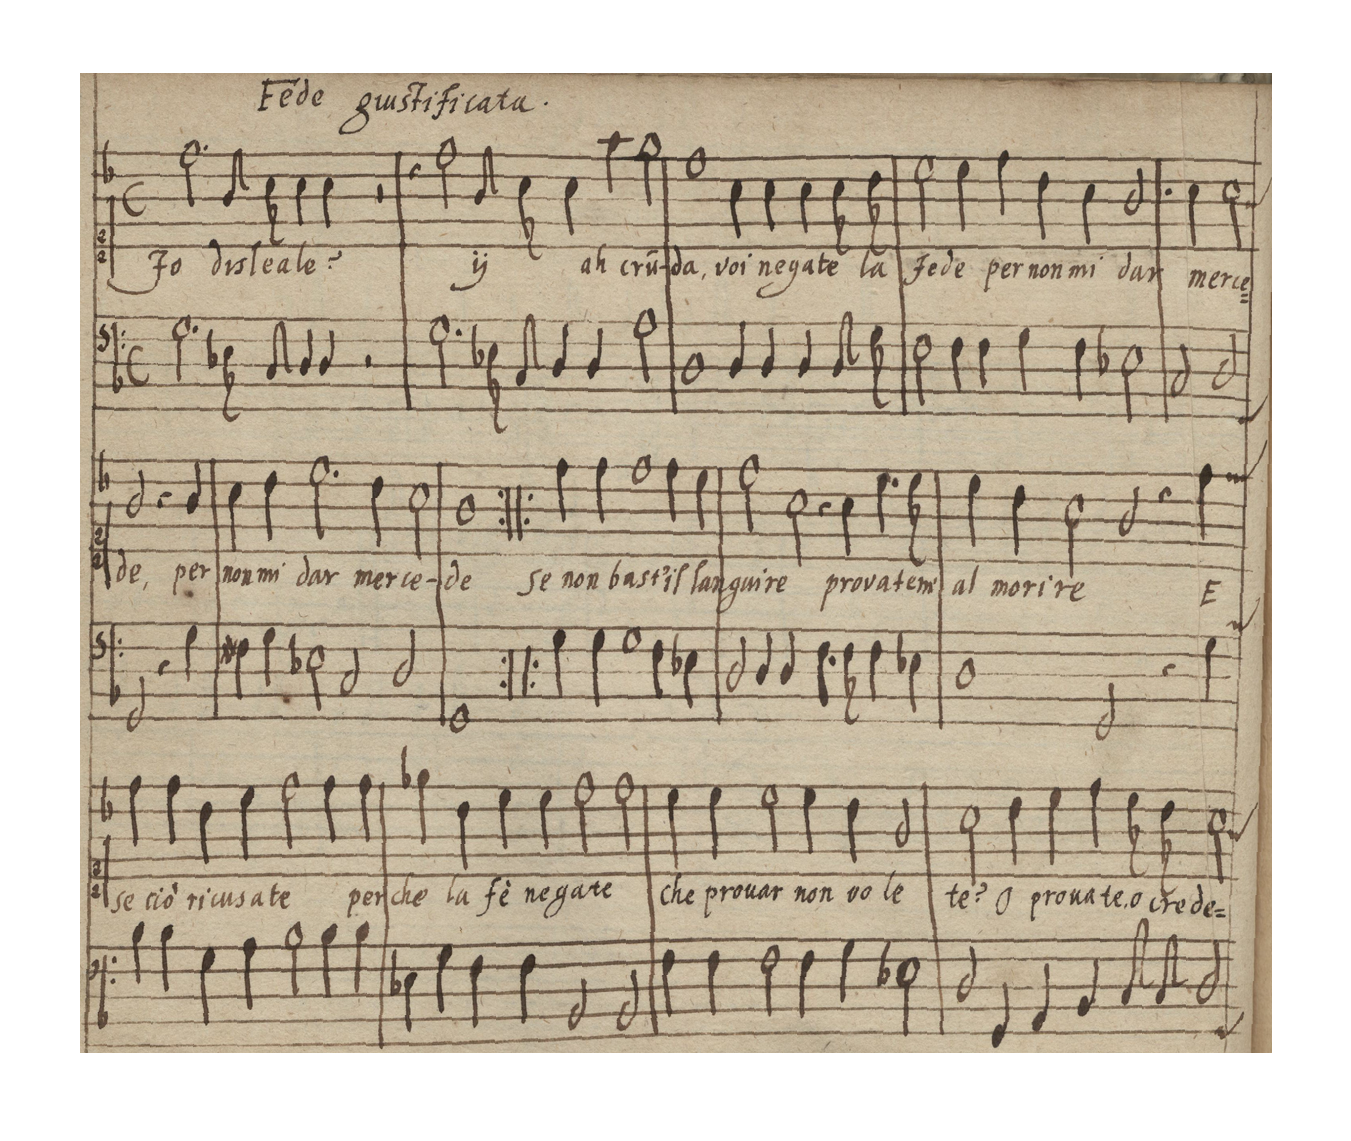 Fede giustificata.
Io disleale? ij ah crũ-da, voi negate la fede per non mi dar merce=
de, per non mi dar merce-de se non bast'il languire provatem' al morire E
se ciò ricusate perche la fè negate che provar non vo le te? O provate, o crede=